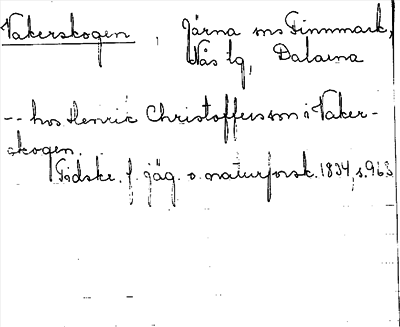 Vakerskogen, Järna sns Finnmark,
Nås tg, Dalarna
-- hos Henric Christoffersson i Vaker-
skogen.
Tidskr. f. jäg. o. naturforsk. 1834, s. 963